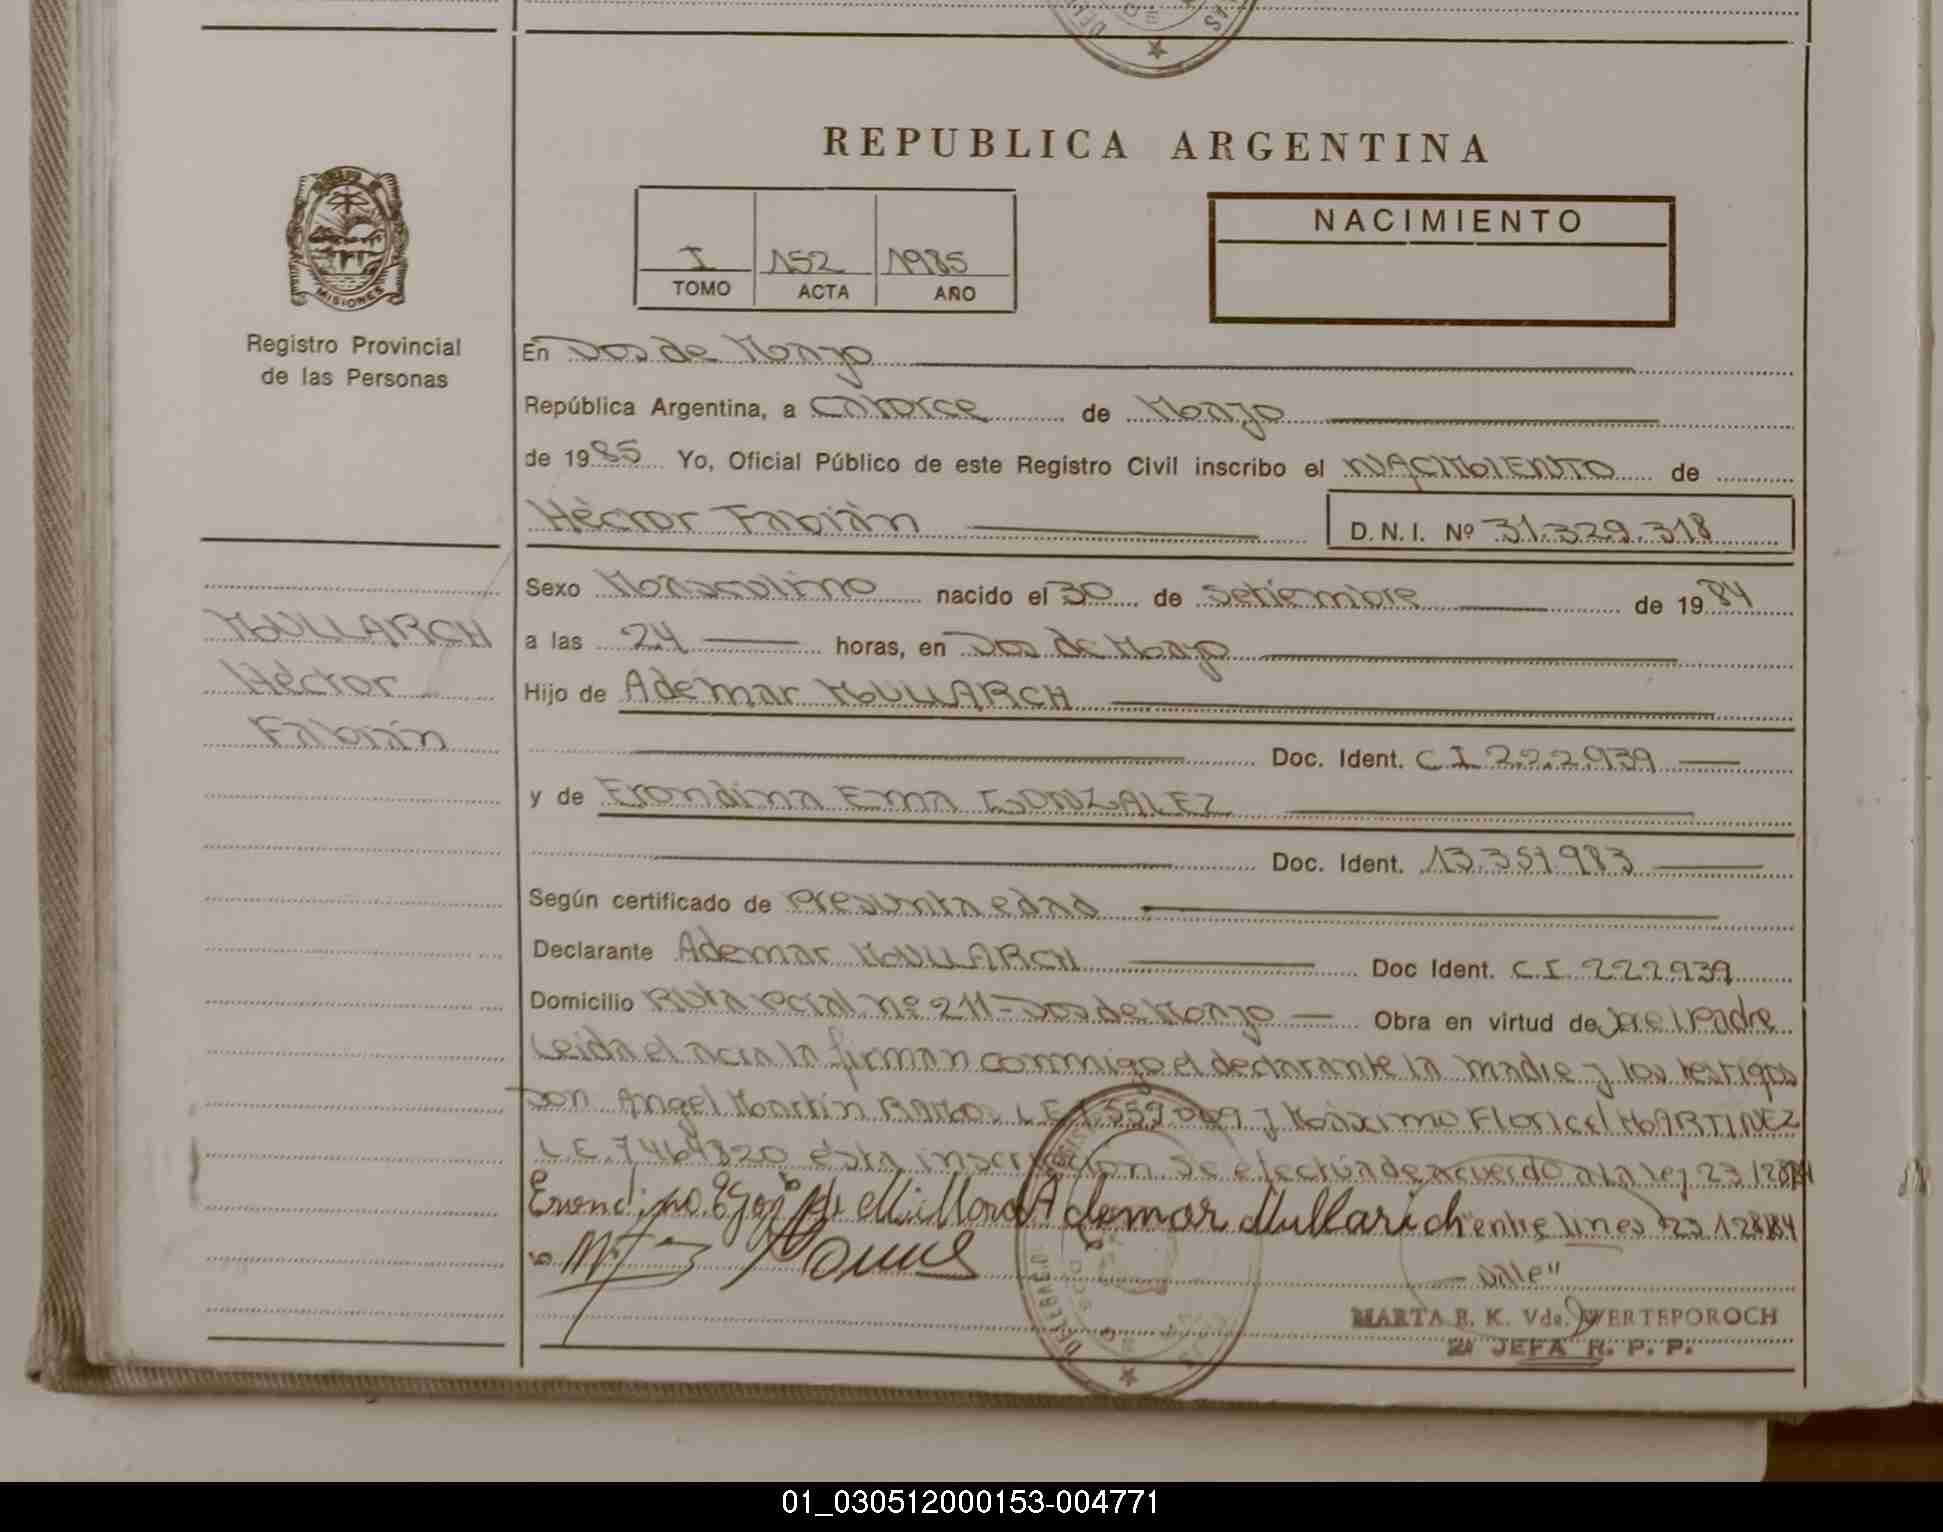 REPUBLICA ARGENTINA
I 152 1985
TOMO ACTA AÑO
NACIMIENTO
MISIONES
Registro Provincial
de las Personas
En Dos de Mayo
República Argentina, a Catorce de Mayo
de 1985 Yo, Oficial Público de este Registro Civil inscribo el NACIMIENTO de
Héctor Fabián D.N.I. Nº 31.329.318
Sexo Masculino nacido el 30 de Setiembre de 1984
a las 24 horas, en Dos de Mayo
Hijo de Ademar MULLARCH
Doc. Ident. C I 222939
y de Erondina Ema GONZALEZ
Doc. Ident. 13.351.983
Según certificado de presunta edad
Declarante Ademar MULLARCH Doc Ident. C.I. 222939
Domicilio Ruta Pcial Nº 211 - Dos de Mayo Obra en virtud de ser el Padre
Leida el acta la firman conmigo el declarante la madre y los testigos
Don Angel Martín LE 1.559.009 y Máximo Floricel MARTINEZ
L E 7464820 ésta inscripción se efectúa de acuerdo a la ley 23128/84
Ademar Mullarich entre lines 23128/84
vale"
MARTA R. K. Vda. WERTEPOROCH
2a JEFA R. P. P.
MULLARCH
Héctor
Fabián
01_030512000153-004771